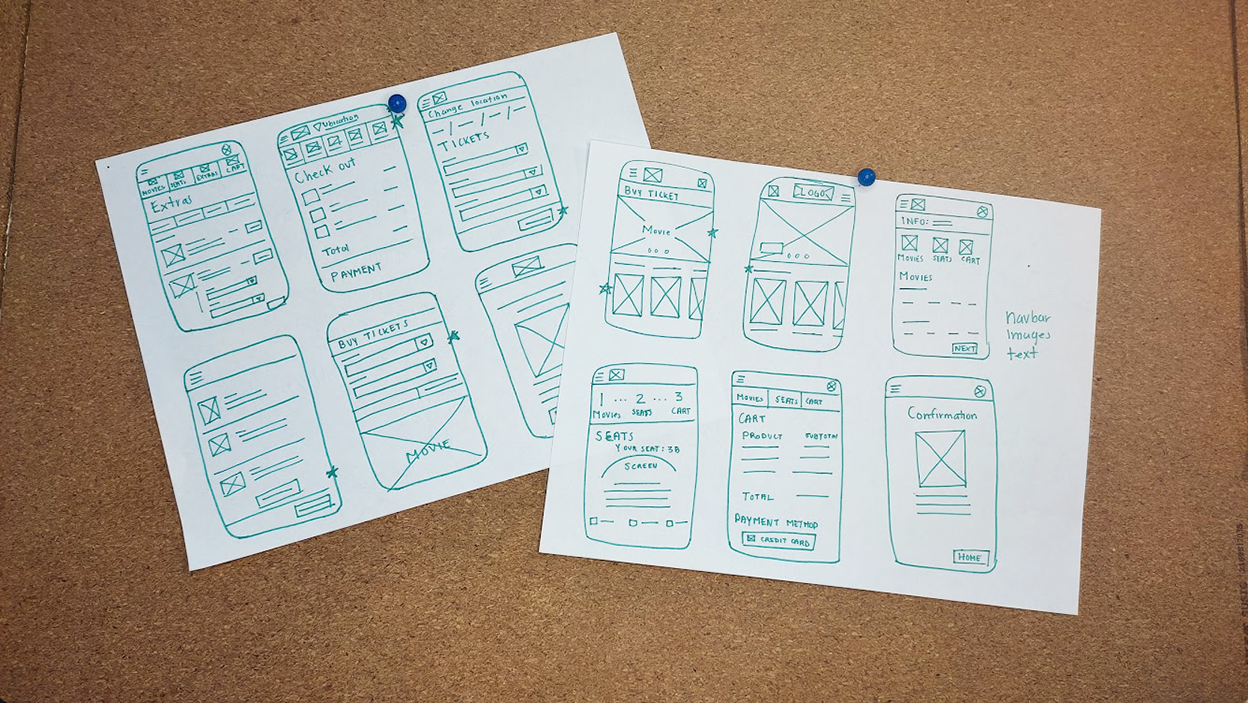 MOVIES SEATS EXTRAS CART
Extras
Ubication
Check out
Total
PAYMENT
Change location
TICKETS
BUY TICKETS
MOVIE
BUY TICKET
Movie
LOGO
INFO:
MOVIES SEATS CART
MOVIES
NEXT
Navbar
Images
text
1 ... 2 ... 3
Movies SEATS CART
SEATS
YOUR SEAT: 3B
SCREEN
MOVIES SEATS CART
CART
PRODUCT SUBTOTAL
TOTAL
PAYMENT METHOD
CREDIT CARD
Confirmation
HOME